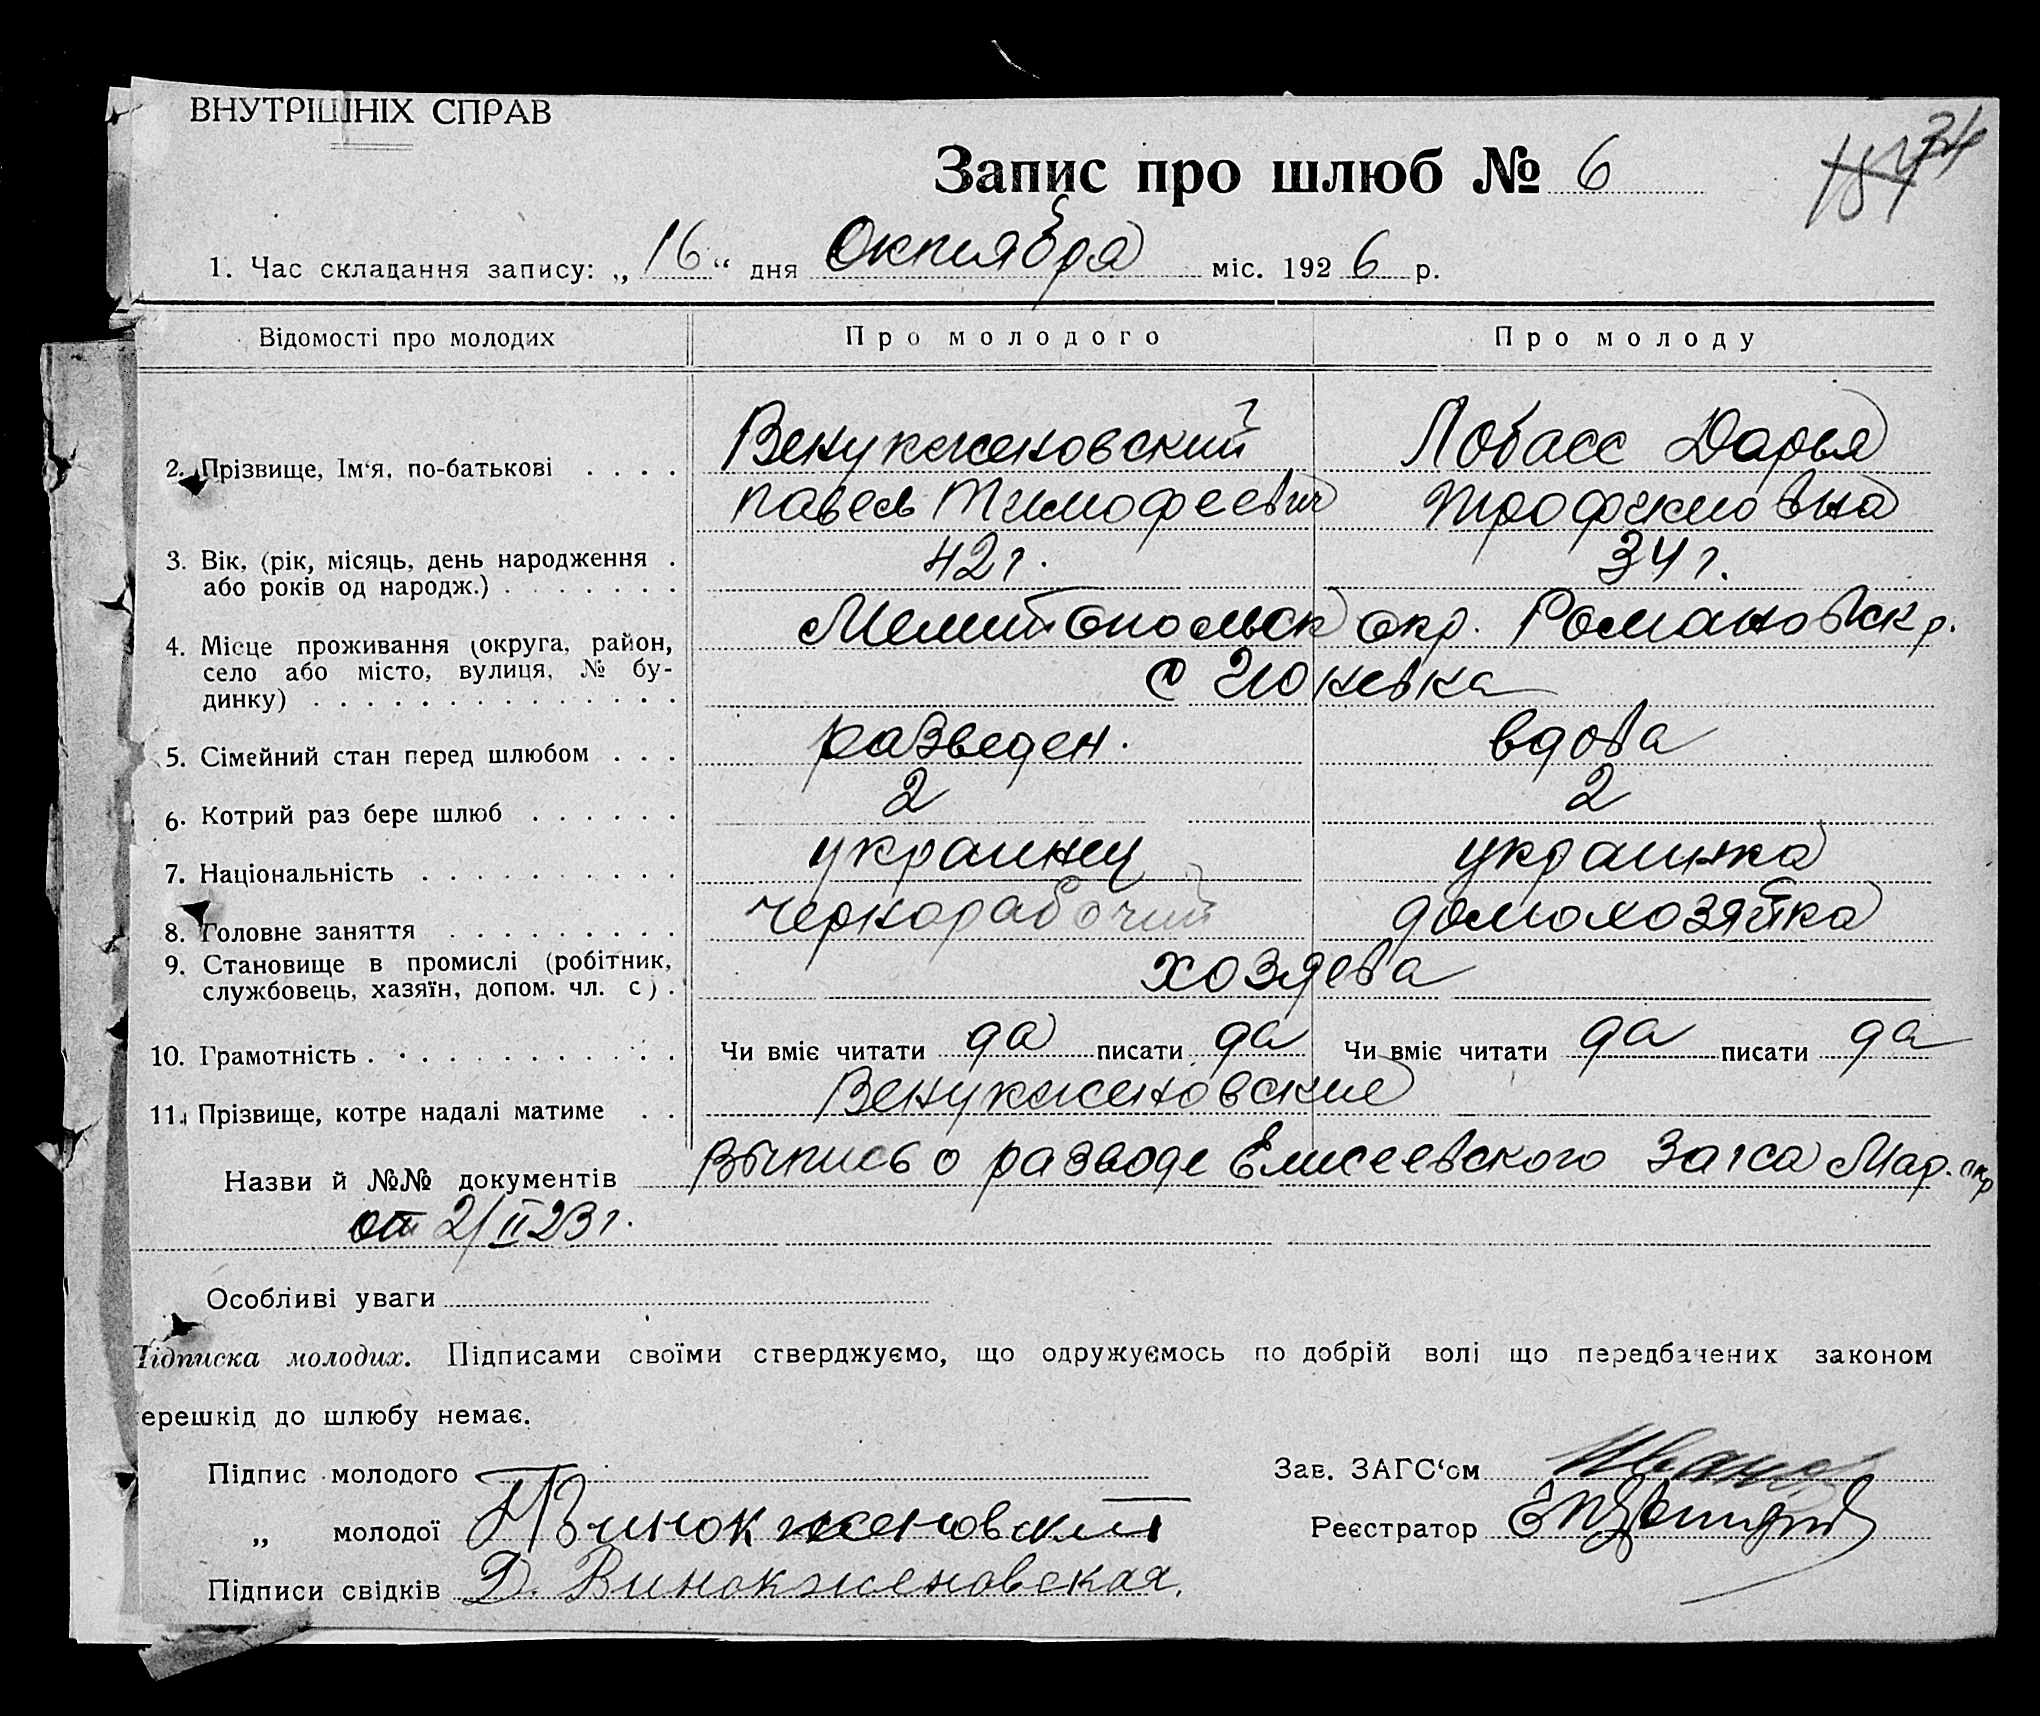 ВНУТРІШНІХ СПРАВ
Запис про шлюб № 6
34
1. Час складання запису: „16“ дня Октября міс. 1926 р.
Відомості про молодих Про молодого Про молоду
Венукженовский Лобасс Дарья
2. Прізвище, Ім‘я, по-батькові . . . .
Павель Тимофеевич Трофимовна
3. Вік, (рік, місяць, день народження . 42 г. 34 г.
або років од народж.) . . . . . . .
Мелитопольск окр. Романовск р.
4. Місце проживання (округа, район,
село або місто, вулиця, № бу-
с
динку) . . . . . . . . . . . . . . .
5. Сімейний стан перед шлюбом . . . разведен. вдова
6. Котрий раз бере шлюб . . . . . . 2 2
7. Національність . . . . . . . . . . украинец украинка
8. Головне заняття . . . . . . . . . чернорабочий домохозяйка
9. Становище в промислі (робітник, хозяева
службовець, хазяїн, допом. чл. с) .
10. Грамотність . . . . . . . . . . . . Чи вміє читати да писати да Чи вміє читати да писати да
11. Прізвище, котре надалі матиме . . Венукженовские
Назви й №№ документів Выпись о разводе Елисеевского Загса Мар. окр
от 2/II 23 г.
Особливі уваги
Підписка молодих. Підписами своїми стверджуємо, що одружуємось по добрій волі що передбачених законом
ерешкід до шлюбу немає.
Підпис молодого Зав. ЗАГС‘ом
„ молодої П Винокженовский Реєстратор
Підписи свідків Д. Винокженовская.